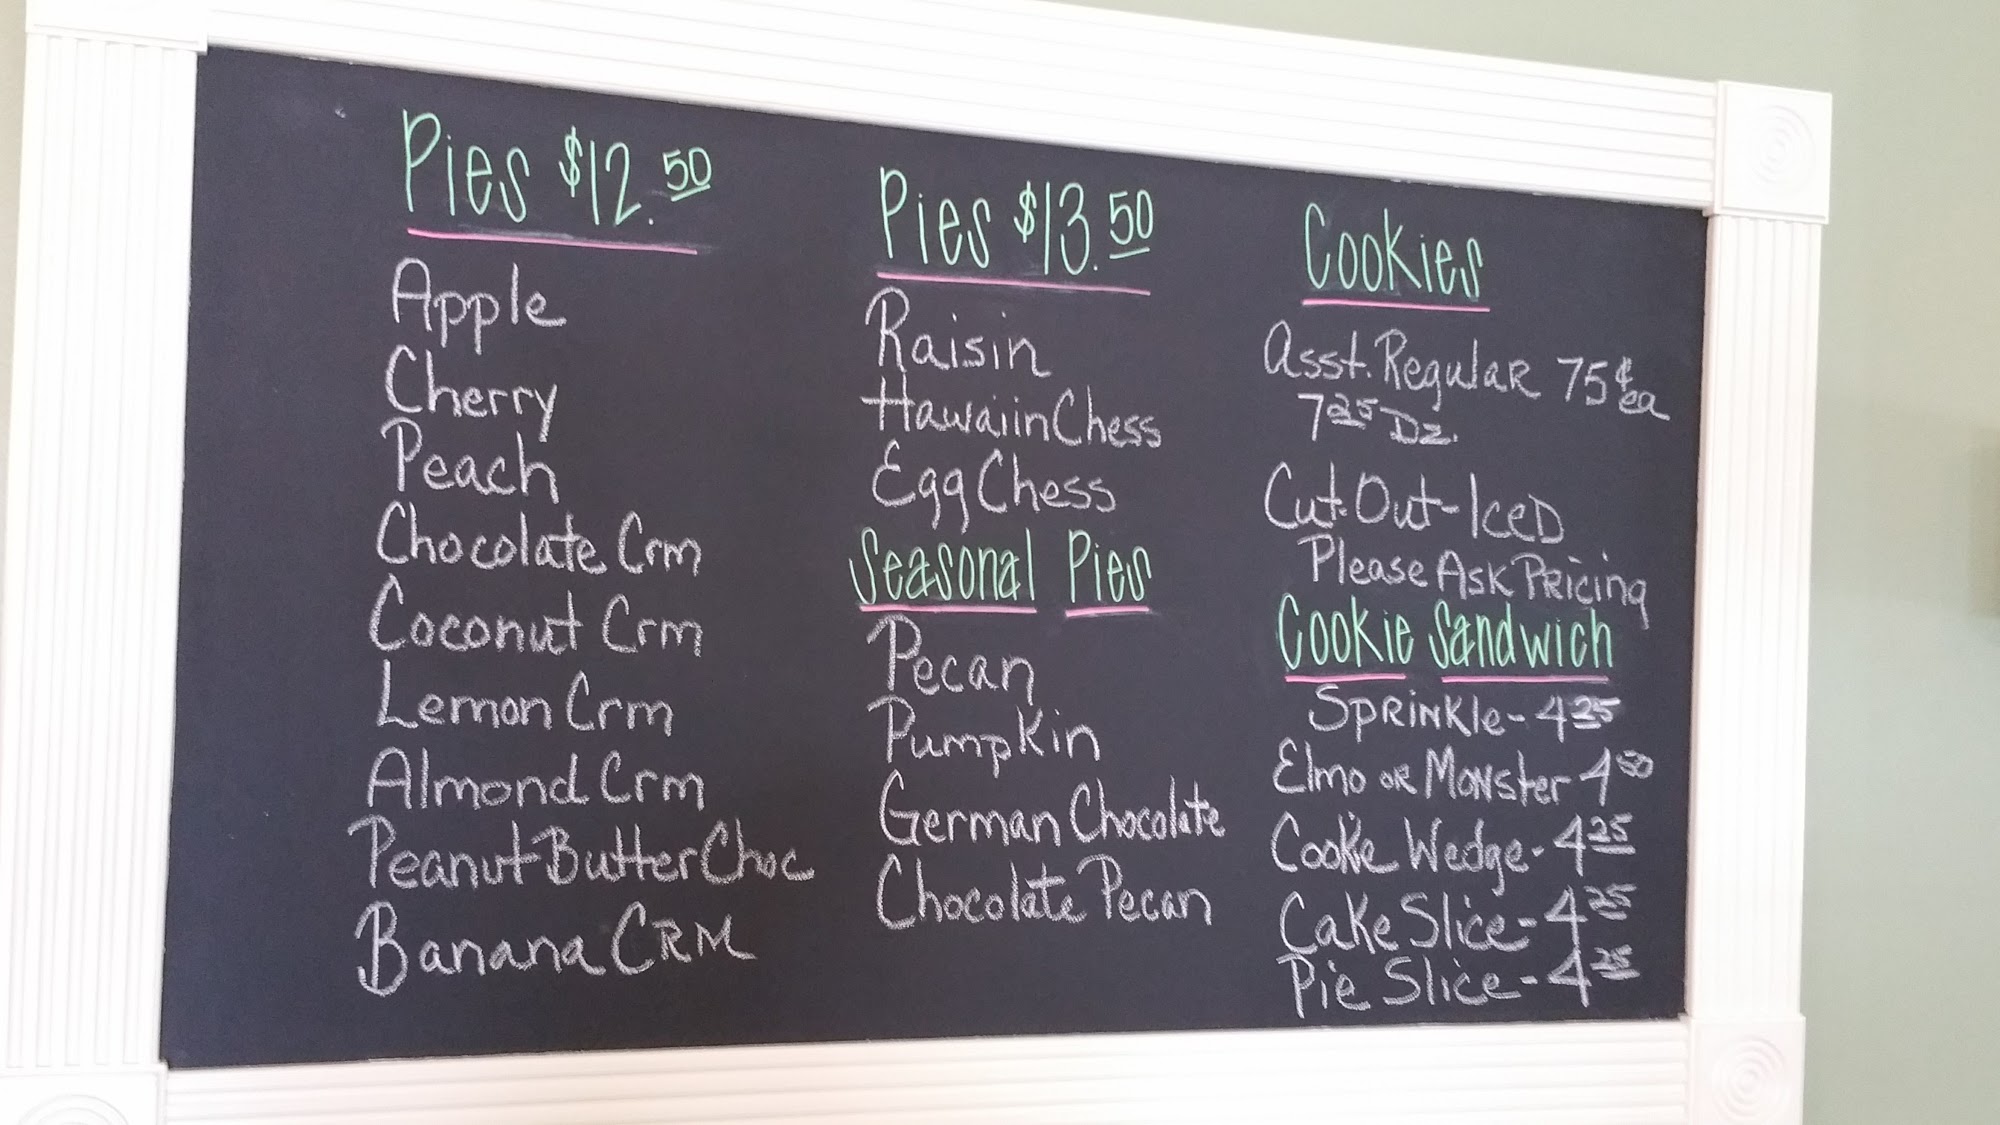 Pies $12.50
Apple
Cherry
Peach
Chocolate Crm
Coconut Crm
Lemon Crm
Almond Crm
Peanut Butter Choc
Banana CRM
Pies $13.50
Raisin
Hawaiin Chess
Egg Chess
Seasonal Pies
Pecan
Pumpkin
German Chocolate
Chocolate Pecan
Cookies
Asst. Regular 75¢ ea
7 25 Dz.
Cut-Out-Iced
Please Ask Pricing
Cookie Sandwich
Sprinkle - 4 25
Elmo or Monster - 4 50
Cookie Wedge - 4 25
Cake Slice - 4 25
Pie Slice - 4 25